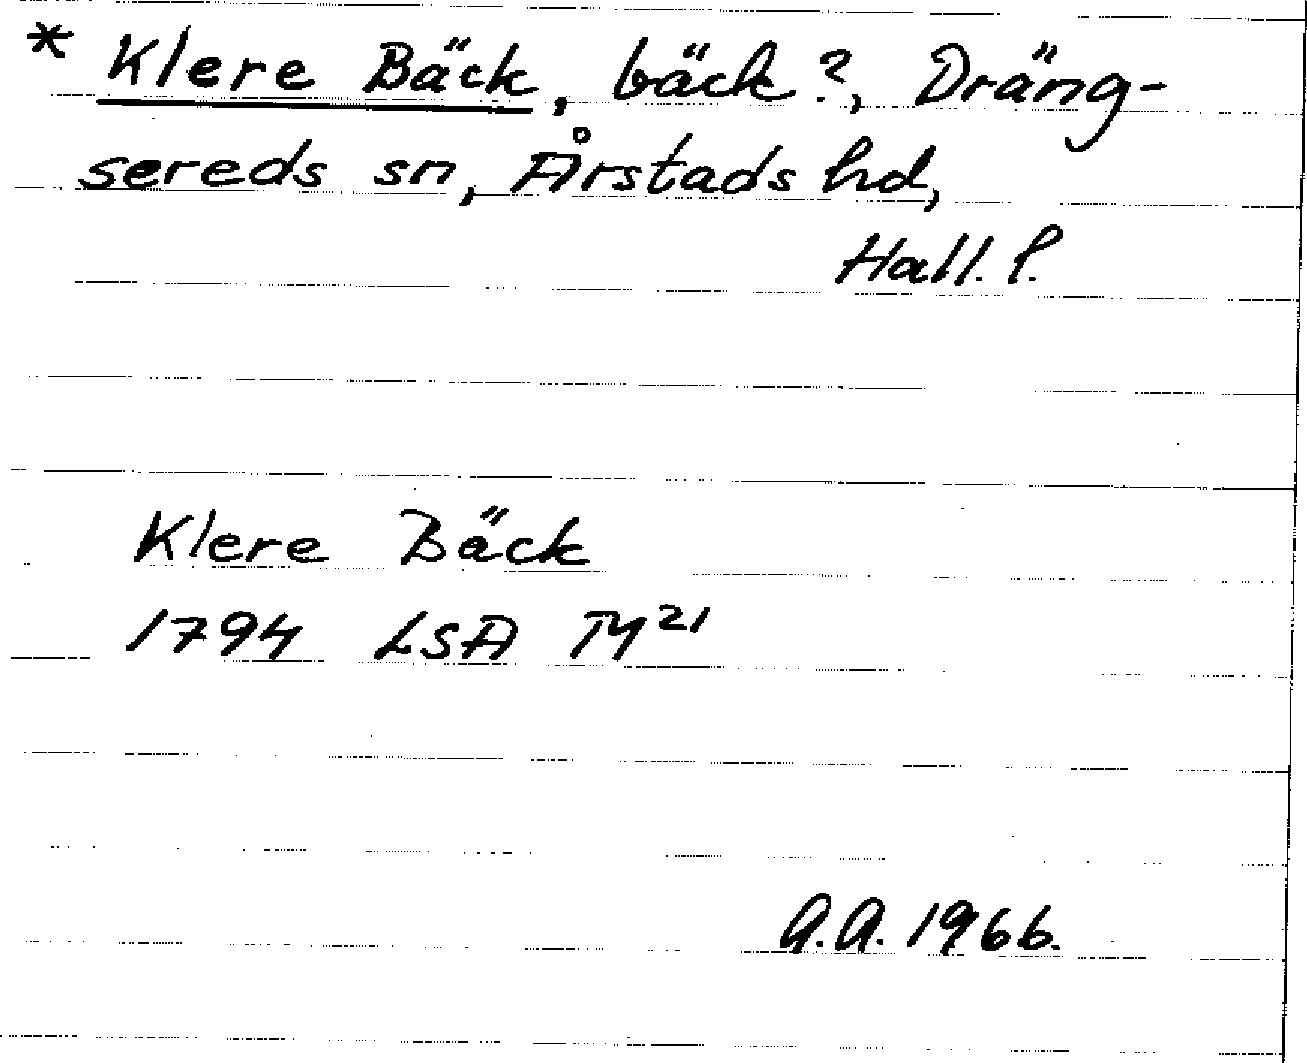 * Klere Bäck, bäck?, Dräng-
sereds sn, Årstads hd,
Hall. l.
Klere Bäck
1794 LSA TY²¹
A.A. 1966.